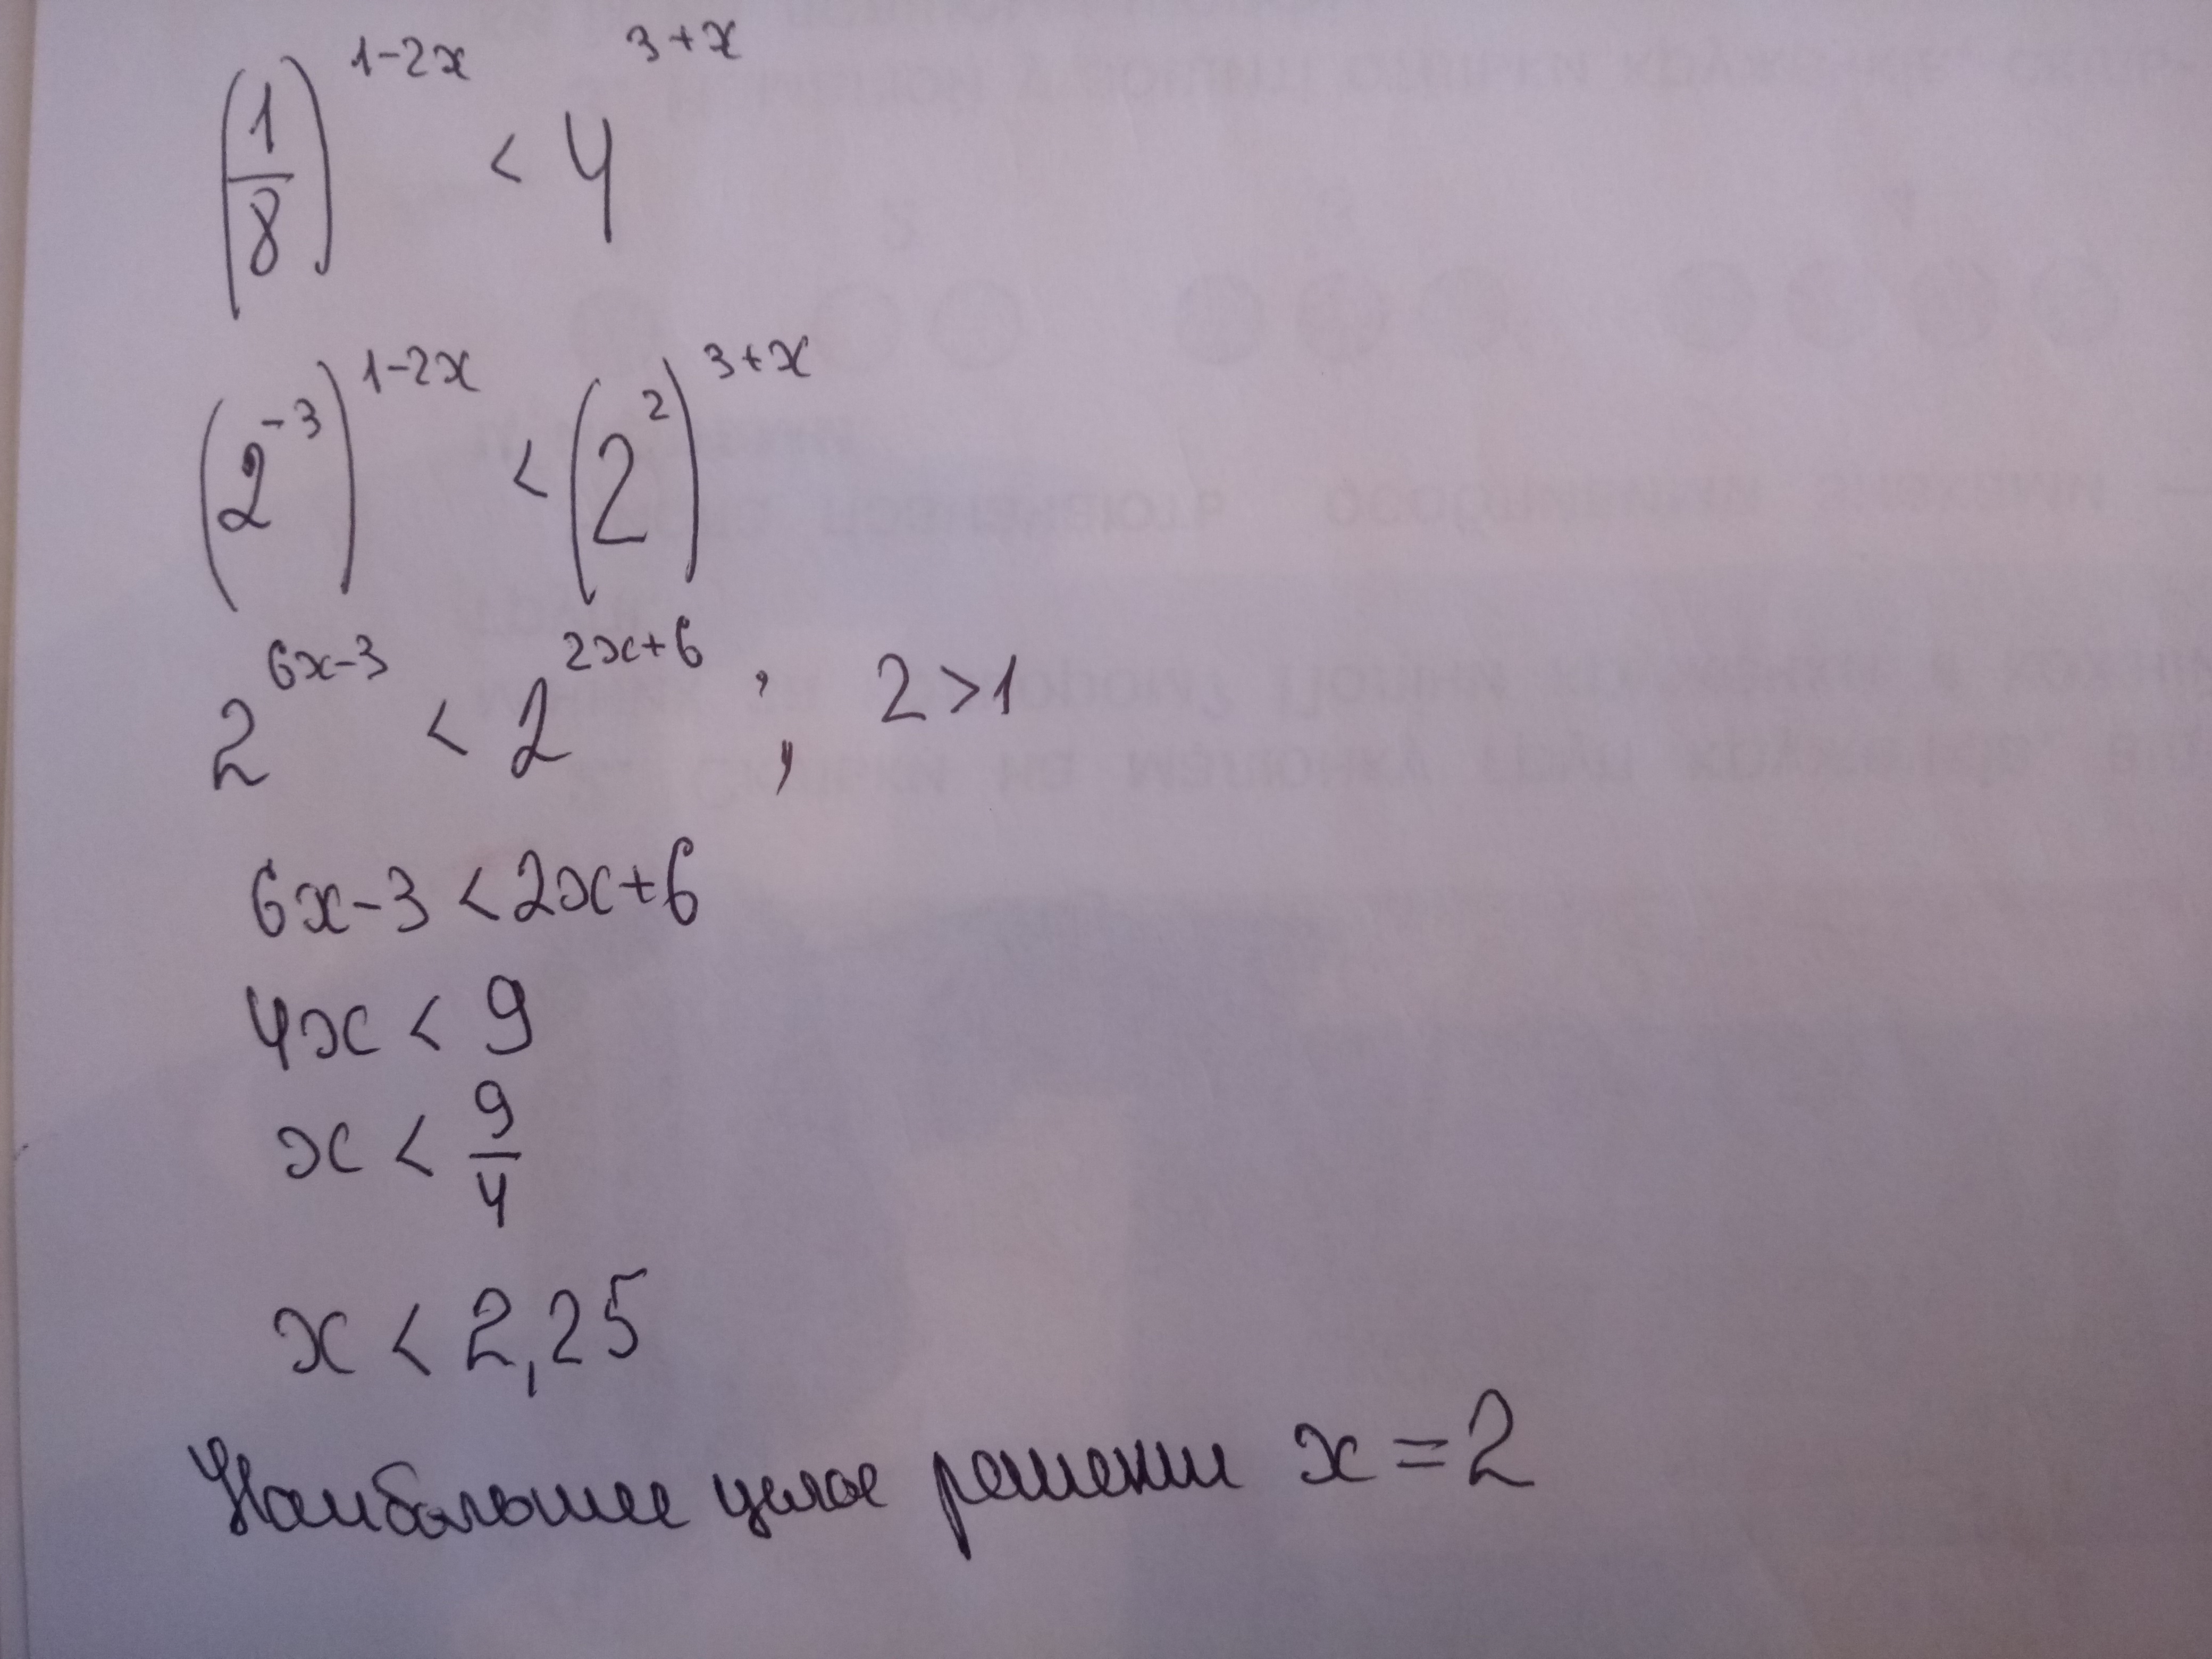 (1/8)^(1-2x) < 4^(3+x)
(2^(-3))^(1-2x) < (2^2)^(3+x)
2^(6x-3) < 2^(2x+6) ; 2>1
6x-3<2x+6
4x < 9
x < 9/4
x < 2,25
Наибольшее целое решении x=2